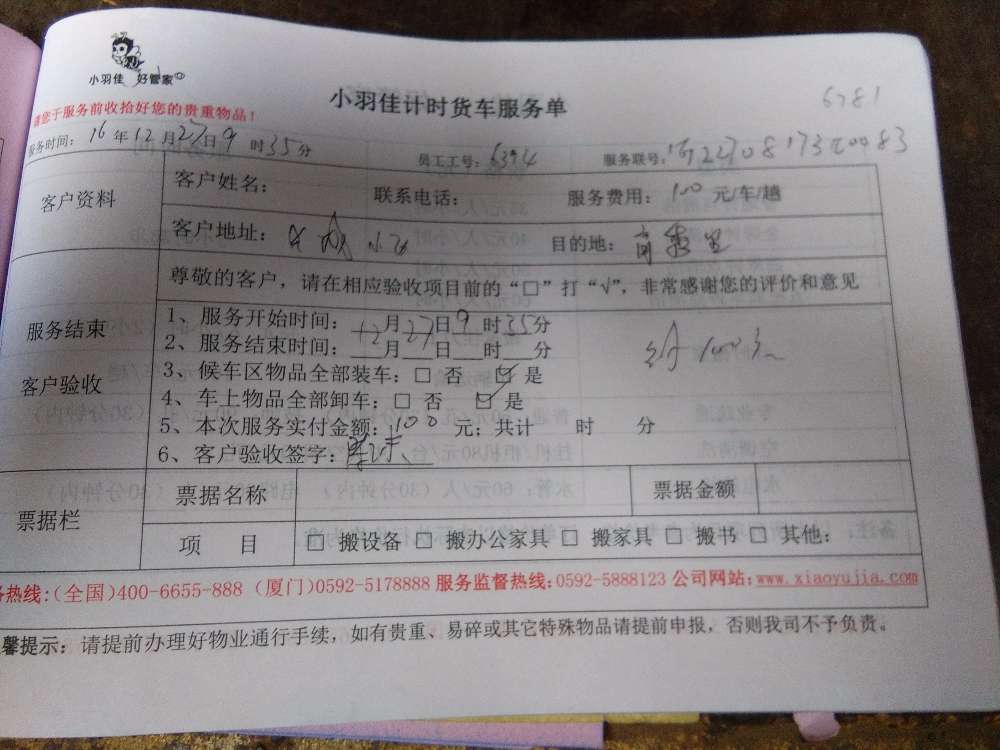 小羽佳 好管家
小羽佳计时货车服务单
6781
请您于服务前收拾好您的贵重物品！
服务时间：16年12月27日9时35分
员工工号：6394
服务联号：
客户资料
客户姓名：
联系电话：
服务费用：100元/车/趟
客户地址：
目的地：
尊敬的客户，请在相应验收项目前的“□”打“√”，非常感谢您的评价和意见
服务结束
客户验收
1、服务开始时间：12月27日9时35分
2、服务结束时间：___月___日___时___分
付100元
3、候车区物品全部装车：□ 否 ☑ 是
4、车上物品全部卸车：□ 否 ☑ 是
5、本次服务实付金额：100元；共计 时 分
6、客户验收签字：
票据栏
票据名称
票据金额
项 目
□ 搬设备 □ 搬办公家具 □ 搬家具 □ 搬书 □ 其他：
务热线：(全国)400-6655-888 (厦门)0592-5178888 服务监督热线：0592-5888123 公司网站：www.xiaoyujia.com
馨提示：请提前办理好物业通行手续，如有贵重、易碎或其它特殊物品请提前申报，否则我司不予负责。